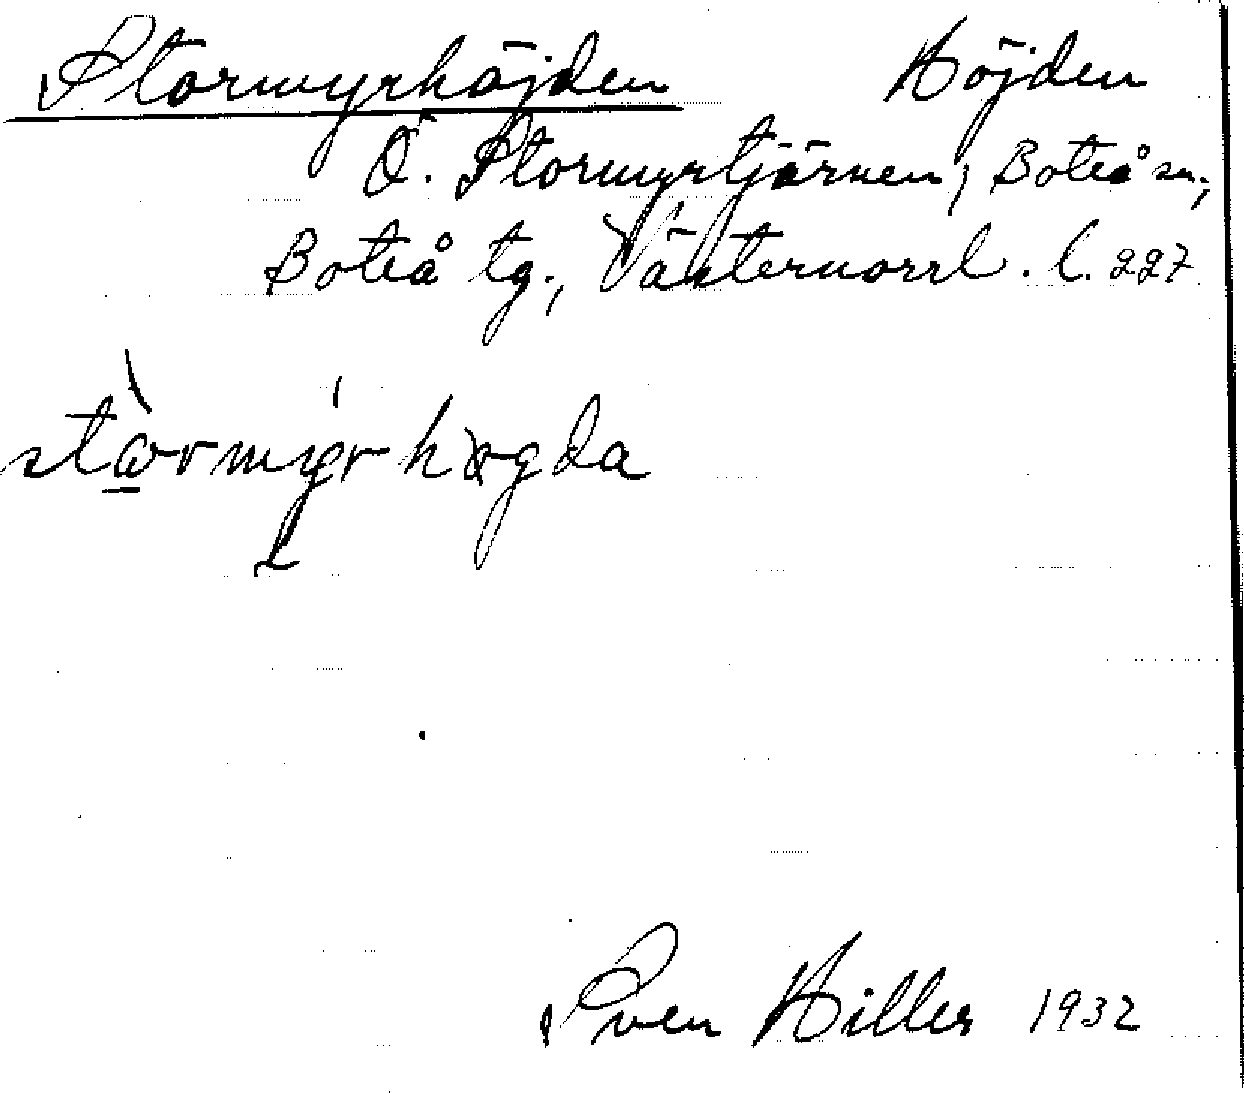 Stormyrhöjden Höjden
Ö. Stormyrtjärnen, Boteå sn.,
Boteå tg., Västernorrl. l. 227
stòrmýrhøgda
Sven Hilles 1932